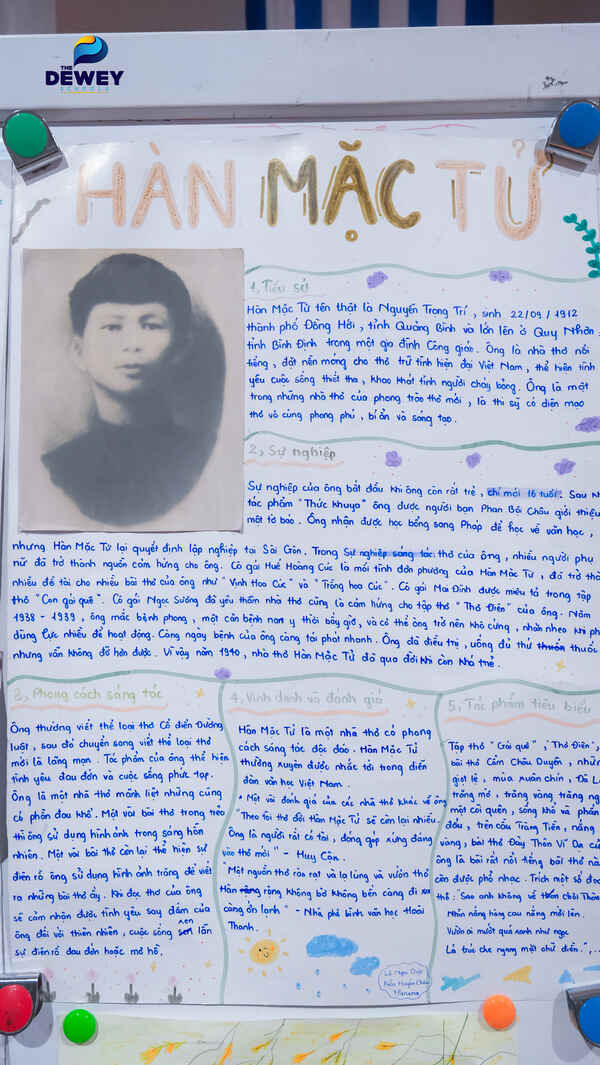 THE
DEWEY
SCHOOLS
HÀN MẶC TỬ
1, Tiểu sử
Hàn Mặc Tử tên thật là Nguyễn Trọng Trí, sinh 22/09/1912
thành phố Đồng Hới, tỉnh Quảng Bình và lớn lên ở Quy Nhơn,
tỉnh Bình Định trong một gia đình Công giáo. Ông là nhà thơ nổi
tiếng, đặt nền móng cho thơ trữ tình hiện đại Việt Nam, thể hiện tình
yêu cuộc sống thiết tha, khao khát tình người cháy bỏng. Ông là một
trong những nhà thơ của phong trào thơ mới, là thi sỹ có diện mạo
thơ vô cùng phong phú, bí ẩn và sáng tạo.
2, Sự nghiệp
Sự nghiệp của ông bắt đầu khi ông còn rất trẻ, chỉ mới 16 tuổi. Sau khi
tác phẩm "Thức khuya" ông được người bạn Phan Bội Châu giới thiệu
một tờ báo. Ông nhận được học bổng sang Pháp để học về văn học,
nhưng Hàn Mặc Tử lại quyết định lập nghiệp tại Sài Gòn. Trong sự nghiệp sáng tác thơ của ông, nhiều người phụ
nữ đã trở thành nguồn cảm hứng cho ông. Cô gái Huế Hoàng Cúc là mối tình đơn phương của Hàn Mặc Tử, đã trở thà
nhiều đề tài cho nhiều bài thơ của ông như "Vịnh Hoa Cúc" và "Trồng hoa Cúc". Cô gái Mai Đình được miêu tả trong tập
thơ "Con gái quê". Cô gái Ngọc Sương đã yêu thầm nhà thơ cũng là cảm hứng cho tập thơ "Thơ Điên" của ông. Năm
1938 - 1939, ông mắc bệnh phong, một căn bệnh nan y thời bấy giờ, và cơ thể ông trở nên khô cứng, nhăn nheo khi phải
dùng lực nhiều để hoạt động. Càng ngày bệnh của ông càng tái phát nhanh. Ông đã điều trị, uống đủ thứ thuốc
nhưng vẫn không đỡ hơn được. Vì vậy năm 1940, nhà thơ Hàn Mặc Tử đã qua đời khi còn khá trẻ.
3, Phong cách sáng tác
Ông thường viết thể loại thơ Cổ điển Đường
luật, sau đó chuyển sang viết thể loại thơ
mới lãng mạn. Tác phẩm của ông thể hiện
tình yêu đau đớn và cuộc sống phức tạp.
Ông là một nhà thơ mãnh liệt nhưng cũng
có phần đau khổ. Một vài bài thơ trong trẻo
thì ông sử dụng hình ảnh trong sáng hồn
nhiên. Một vài bài thơ còn lại thể hiện sự
điên rồ ông sử dụng hình ảnh trăng để viết
ra những bài thơ ấy. Khi đọc thơ của ông
sẽ cảm nhận được tình yêu say đắm của
ông đối với thiên nhiên, cuộc sống xen lẫn
sự điên rồ đau đớn hoặc mơ hồ.
4, Vinh danh và đánh giá
Hàn Mặc Tử là một nhà thơ có phong
cách sáng tác độc đáo. Hàn Mặc Tử
thường xuyên được nhắc tới trong diễn
đàn văn học Việt Nam.
* Một vài đánh giá của các nhà thơ khác về ông
"Theo tôi thơ đời Hàn Mặc Tử sẽ còn lại nhiều.
Ông là người rất có tài, đóng góp xứng đáng
vào thơ mới" - Huy Cận.
"Một nguồn thơ rào rạt và lạ lùng và vườn thơ
Hàn rộng không bờ không bến càng đi xa
càng ớn lạnh" - Nhà phê bình văn học Hoài
Thanh.
5, Tác phẩm tiêu biểu
Tập thơ "Gái quê", "Thơ Điên",
bài thơ Cẩm Châu Duyên, nhữn
giọt lệ, mùa xuân chín, Đà Lạ
trăng mờ, trăng vàng trăng ng
một cõi quên, sống khổ và phấn
đấu, trên cầu Tràng Tiền, nắng
vàng, bài thơ Đây Thôn Vĩ Dạ củ
ông là bài rất nổi tiếng bài thơ nà
còn được phổ nhạc. Trích một số đoạ
thơ: "Sao anh không về chơi Thôn
Nhìn nắng hàng cau nắng mới lên.
Vườn ai mướt quá xanh như ngọc
Lá trúc che ngang mặt chữ điền.",..